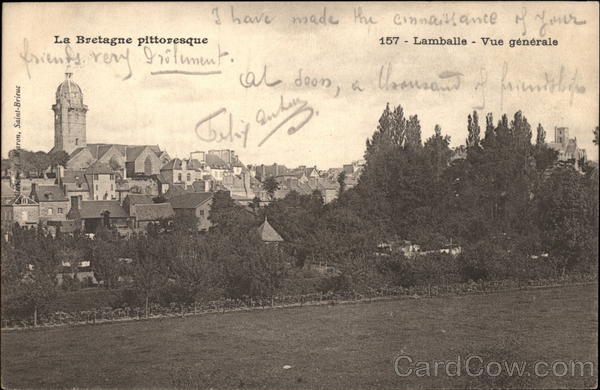 I have made the connaissance of your
La Bretagne pittoresque
157 - Lamballe - Vue générale
friends very Drôlement.
At soon, a thousand of friendship
Felix
Waron, Saint-Brieuc
CardCow.com